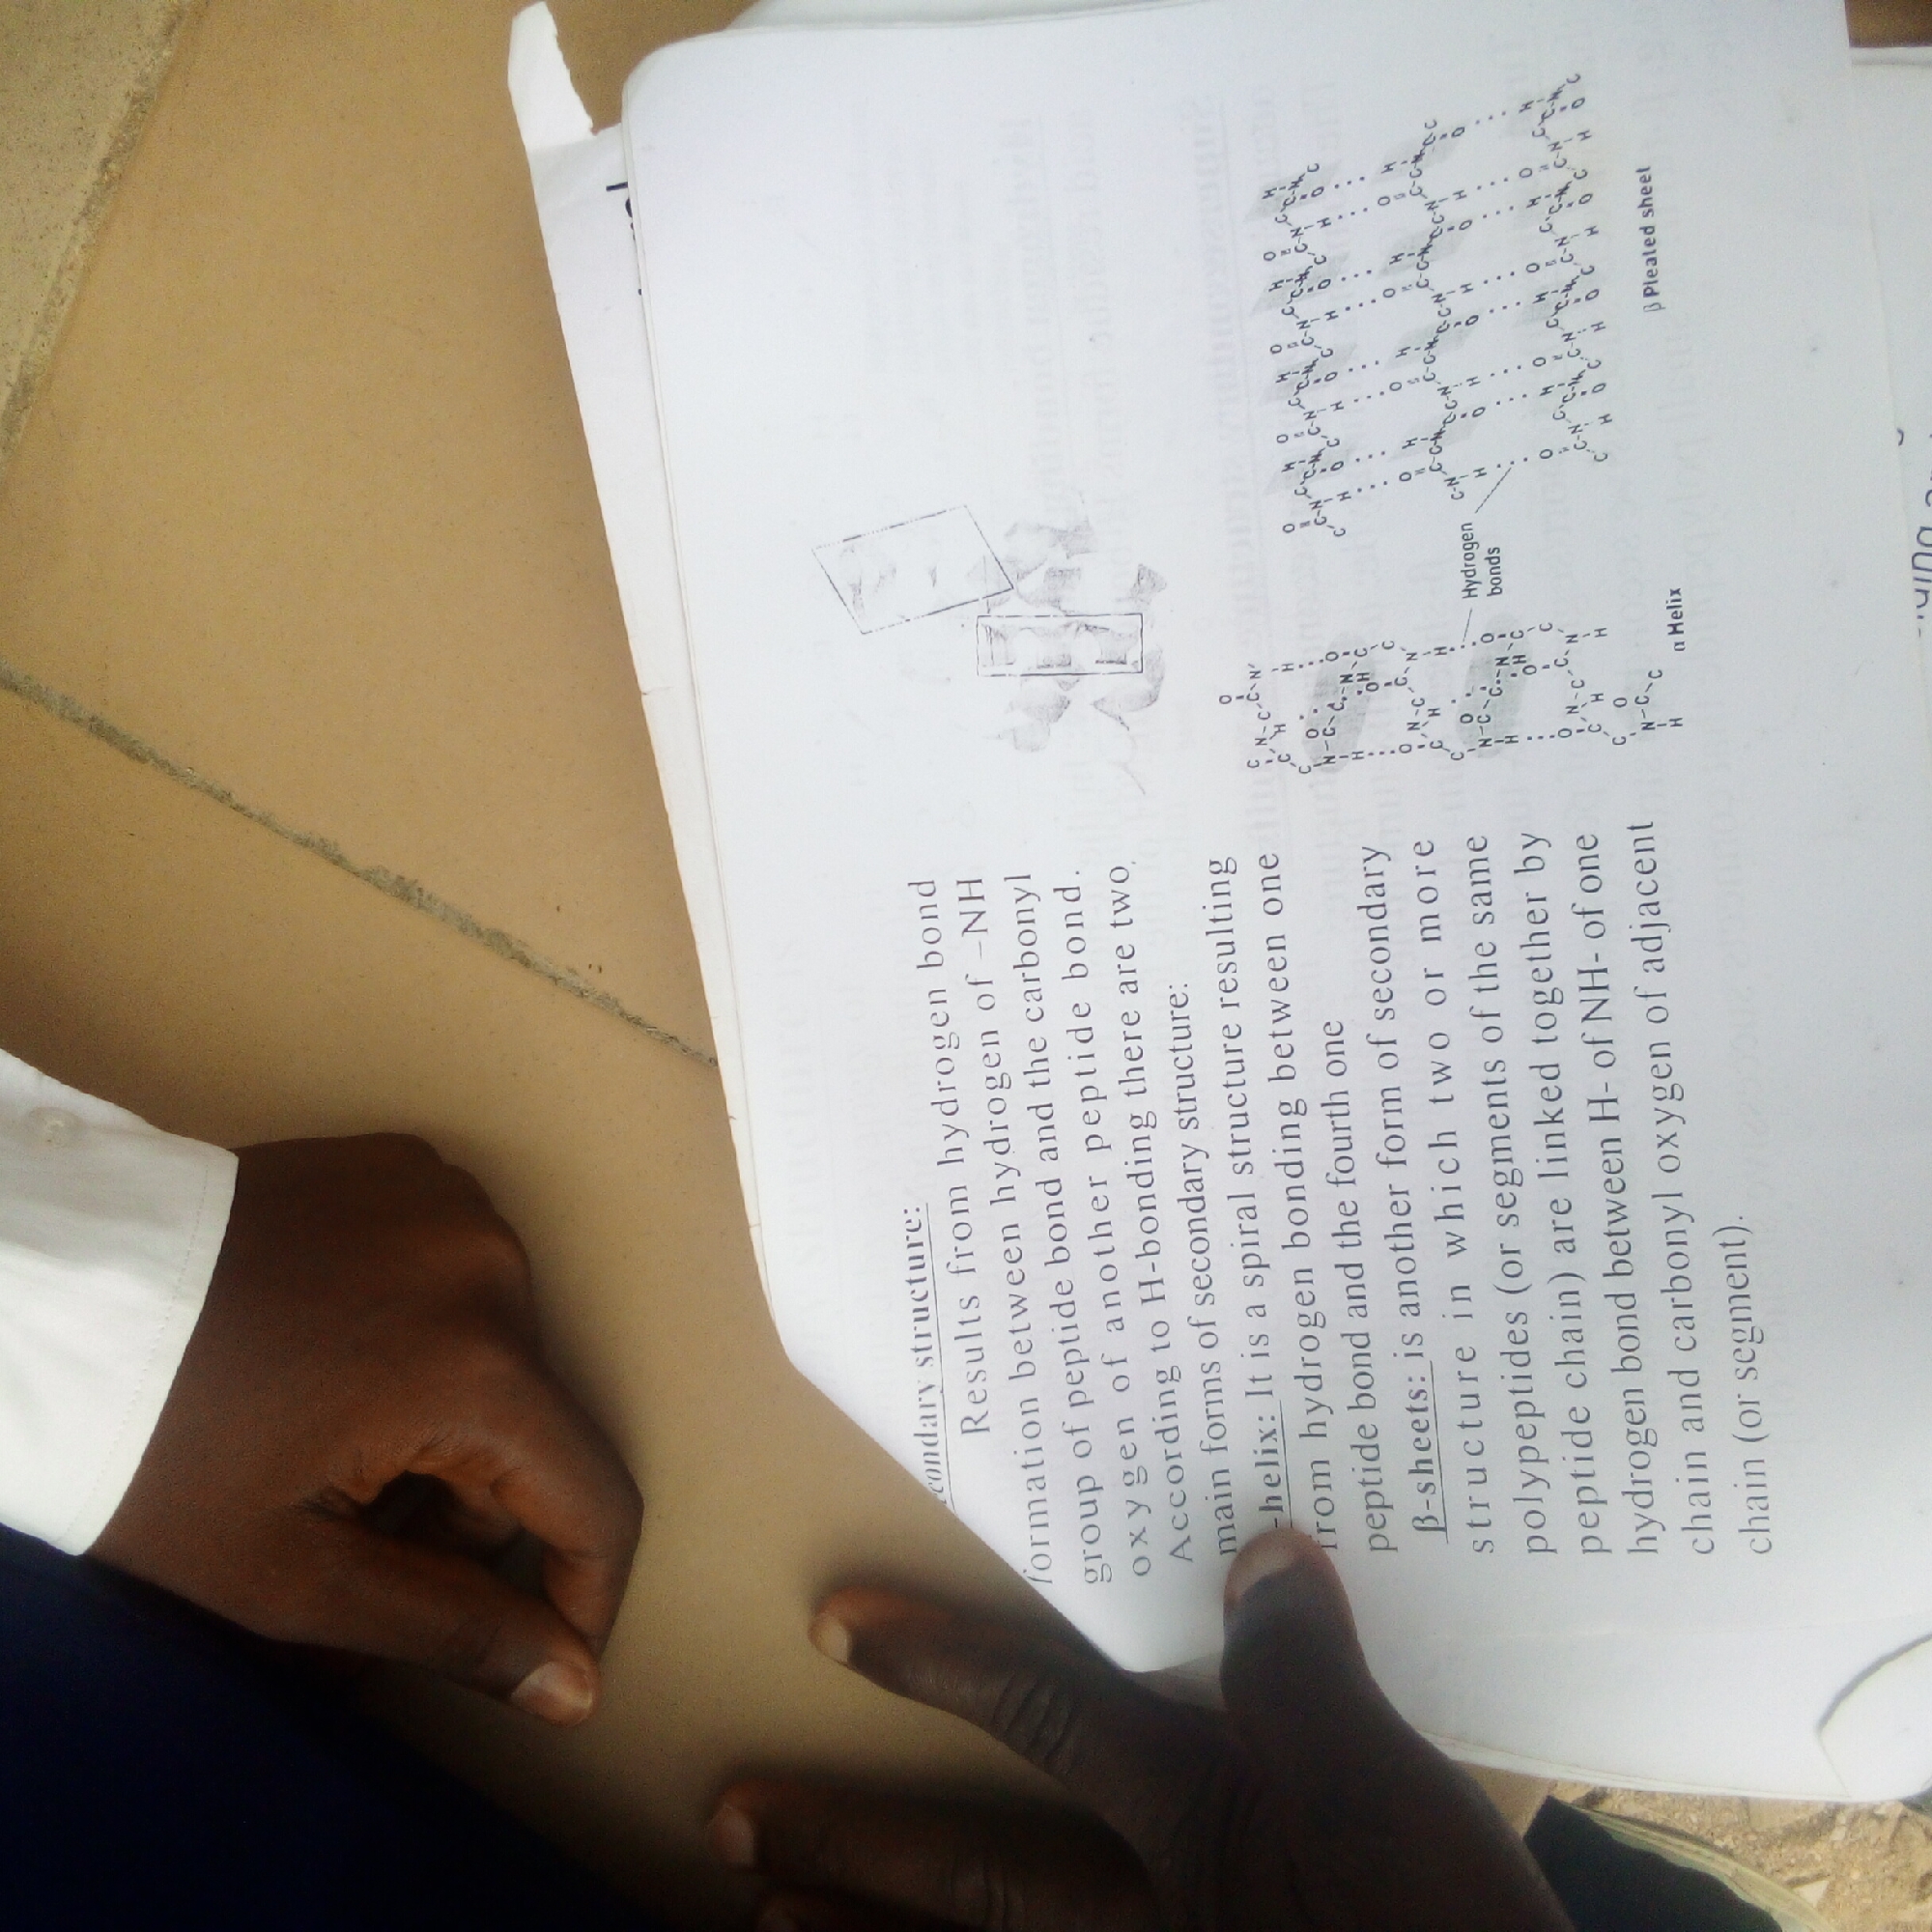 condary structure:
Results from hydrogen bond
formation between hydrogen of –NH
group of peptide bond and the carbonyl
oxygen of another peptide bond.
According to H-bonding there are two
main forms of secondary structure:
-helix: It is a spiral structure resulting
from hydrogen bonding between one
peptide bond and the fourth one
β-sheets: is another form of secondary
structure in which two or more
polypeptides (or segments of the same
peptide chain) are linked together by
hydrogen bond between H- of NH- of one
chain and carbonyl oxygen of adjacent
chain (or segment).
Hydrogen
bonds
α Helix
β Pleated sheet